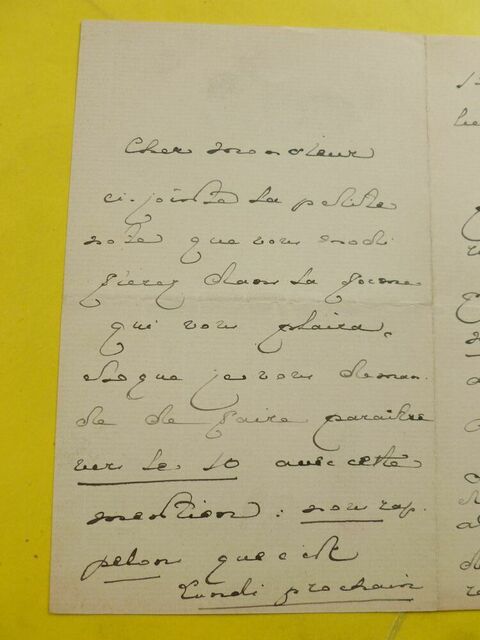 Cher monsieur
ci-jointe la petite
note que vous modi
fierez dans la forme
qui vous plaira,
et que je vous deman-
de de faire paraître
vers le 10 avec cette
mention : nous rap-
pelons que c'est
Lundi prochain